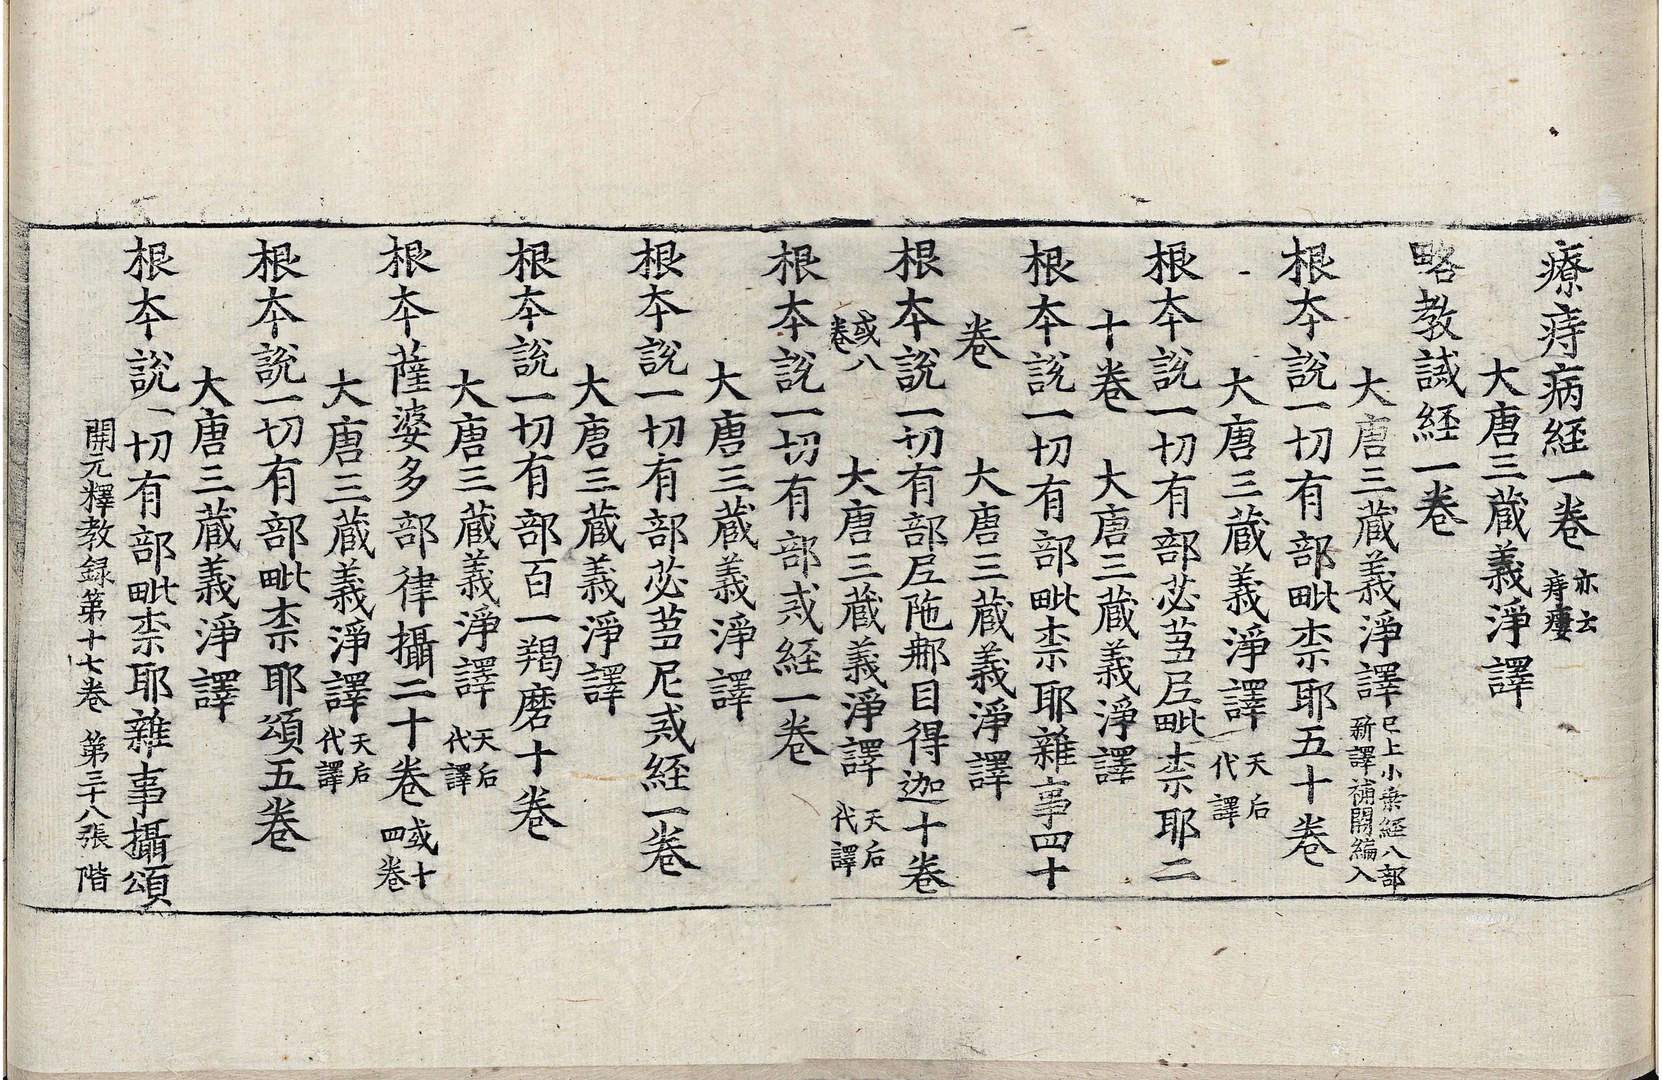 療痔病経一卷 亦云痔瘻
大唐三蔵義淨譯
略教誡経一卷
大唐三蔵義淨譯 已上小乗経八部新譯補闕編入
根夲說一切有部毗柰耶五十卷
大唐三蔵義淨譯 天后代譯
根夲說一切有部苾芻尼毗柰耶二
十卷 大唐三蔵義淨譯
根夲說一切有部毗柰耶雜事四十
卷 大唐三蔵義淨譯
根夲說一切有部尼陁那目得迦十卷
或八卷 大唐三蔵義淨譯 天后代譯
根夲說一切有部戒経一卷
大唐三蔵義淨譯
根夲說一切有部苾芻尼戒経一卷
大唐三蔵義淨譯
根夲說一切有部百一羯磨十卷
大唐三蔵義淨譯 天后代譯
根夲薩婆多部律攝二十卷 或十四卷
大唐三蔵義淨譯 天后代譯
根夲說一切有部毗柰耶頌五卷
大唐三蔵義淨譯
根夲說一切有部毗柰耶雜事攝頌
開元釋教録第十七卷 第三十八張 階